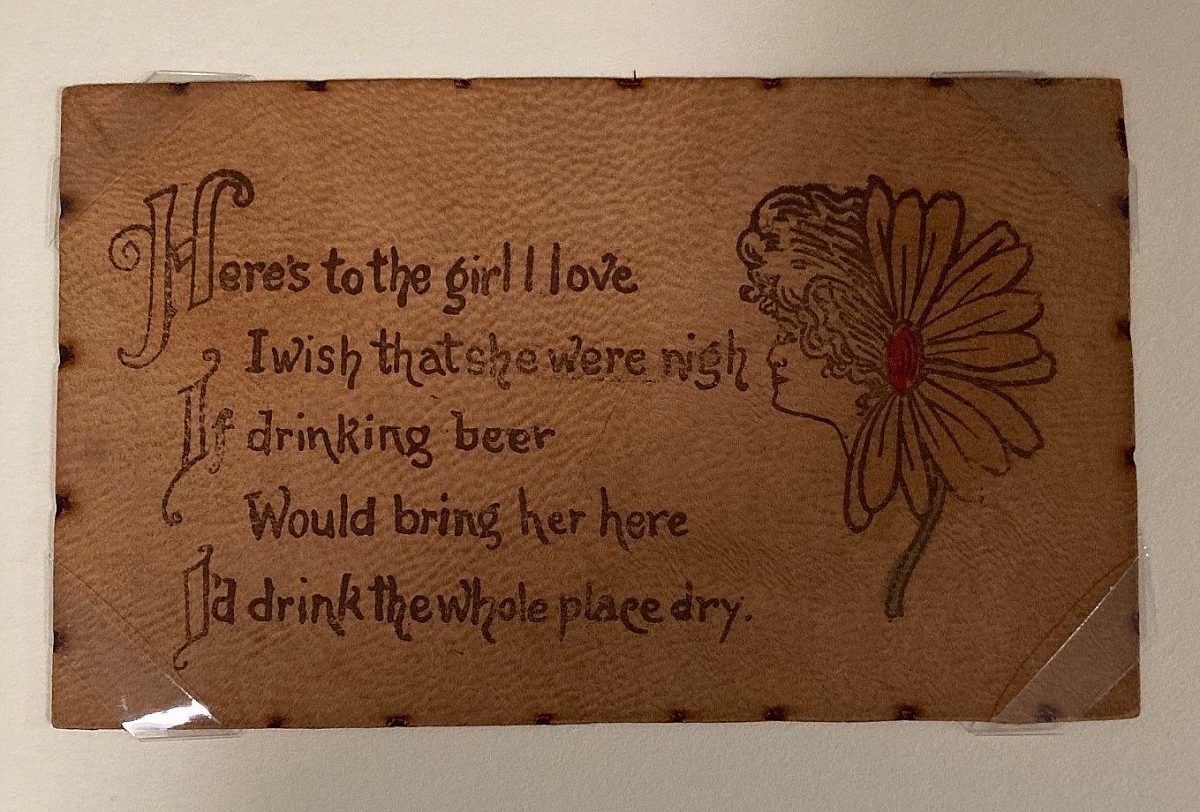 Here's to the girl I love
I wish that she were nigh
If drinking beer
Would bring her here
I'd drink the whole place dry.